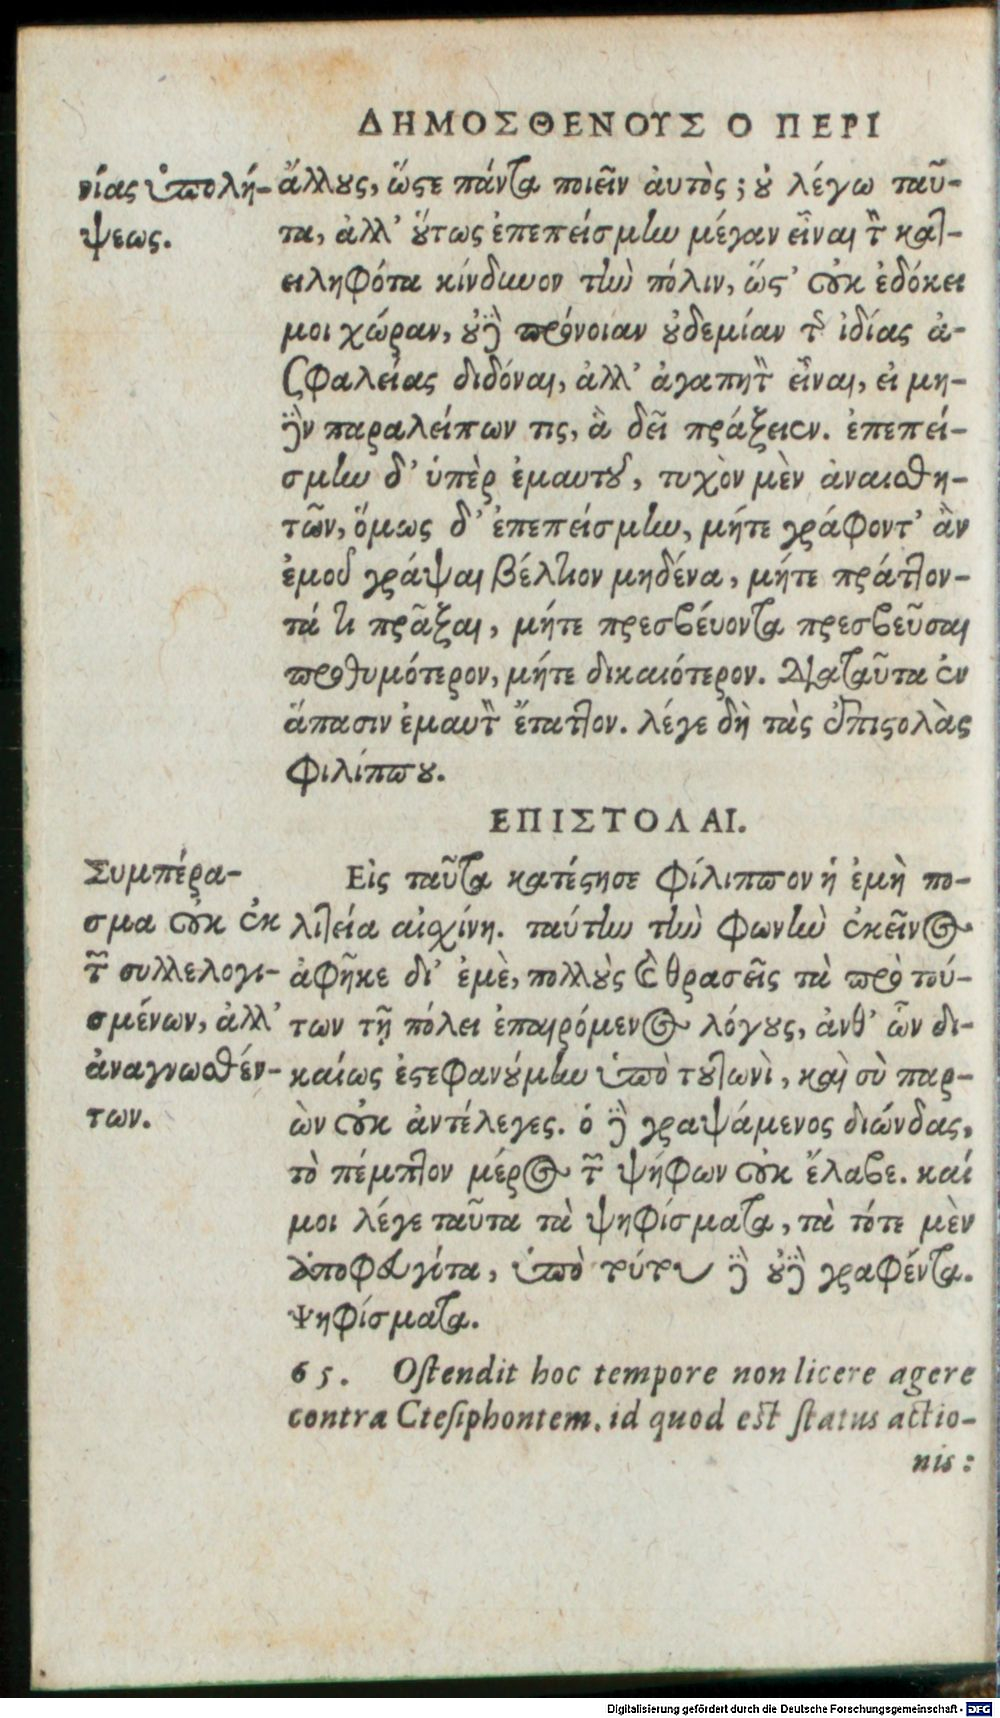 ΔΗΜΟΣΘΕΝΟΥΣ Ο ΠΕΡΙ
νίας ὑπολή-
ψεως.
ἄλλους, ὥστε πάντα ποιεῖν ἀυτὸς; οὐ λέγω ταῦ-
τα, ἀλλ' οὕτως ἐπεπείσμην μέγαν εἶναι τὸν κατ-
ειληφότα κίνδυνον τὴν πόλιν, ὥστ' οὐκ ἐδόκει
μοι χώραν, οὐδὲ πρόνοιαν οὐδεμίαν τῆς ἰδίας ἀ-
σφαλείας διδόναι, ἀλλ' ἀγαπητὸν εἶναι, εἰ μη-
δὲν παραλείπων τις, ἃ δεῖ πράξειεν. ἐπεπεί-
σμην δ' ὑπὲρ ἐμαυτοῦ, τυχὸν μὲν ἀναισθη-
τῶν, ὅμως δ' ἐπεπείσμην, μήτε γράφοντ' ἂν
ἐμοῦ γράψαι βέλτιον μηδένα, μήτε πράττον-
τά τι πρᾶξαι, μήτε πρεσβέυοντα πρεσβεῦσαι
προθυμότερον, μήτε δικαιότερον. Διαταῦτα ἐν
ἅπασιν ἐμαυτὸν ἔταττον. λέγε δὴ τὰς ἐπιστολὰς
Φιλίππου.
ΕΠΙΣΤΟΛΑΙ.
Συμπέρα-
σμα οὐκ ἐκ
τῶν συλλελογι-
σμένων, ἀλλ'
ἀναγνωσθέν-
των.
Εἰς ταῦτα κατέστησε Φίλιππον ἡ ἐμὴ πο-
λιτεία αἰσχίνη. ταύτην τὴν φωνὴν ἐκεῖνος
ἀφῆκε δι' ἐμὲ, πολλοὺς καὶ θρασεῖς τὰ πρὸ τού-
των τῇ πόλει ἐπαιρόμενος λόγους, ἀνθ' ὧν δι-
καίως ἐστεφανούμην ὑπὸ τουτωνὶ, καὶ σὺ παρ-
ὼν οὐκ ἀντέλεγες. ὁ δὲ γραψάμενος διώνδας,
τὸ πέμπτον μέρος τῶν ψήφων οὐκ ἔλαβε. καί
μοι λέγε ταῦτα τὰ ψηφίσματα, τὰ τότε μὲν
ἀποφυγόντα, ὑπὸ τούτου δὲ οὐδὲ γραφέντα.
Ψηφίσματα.
65. Ostendit hoc tempore non licere agere
contra Ctesiphontem. id quod est status actio-
nis:
Digitalisierung gefördert durch die Deutsche Forschungsgemeinschaft - DFG